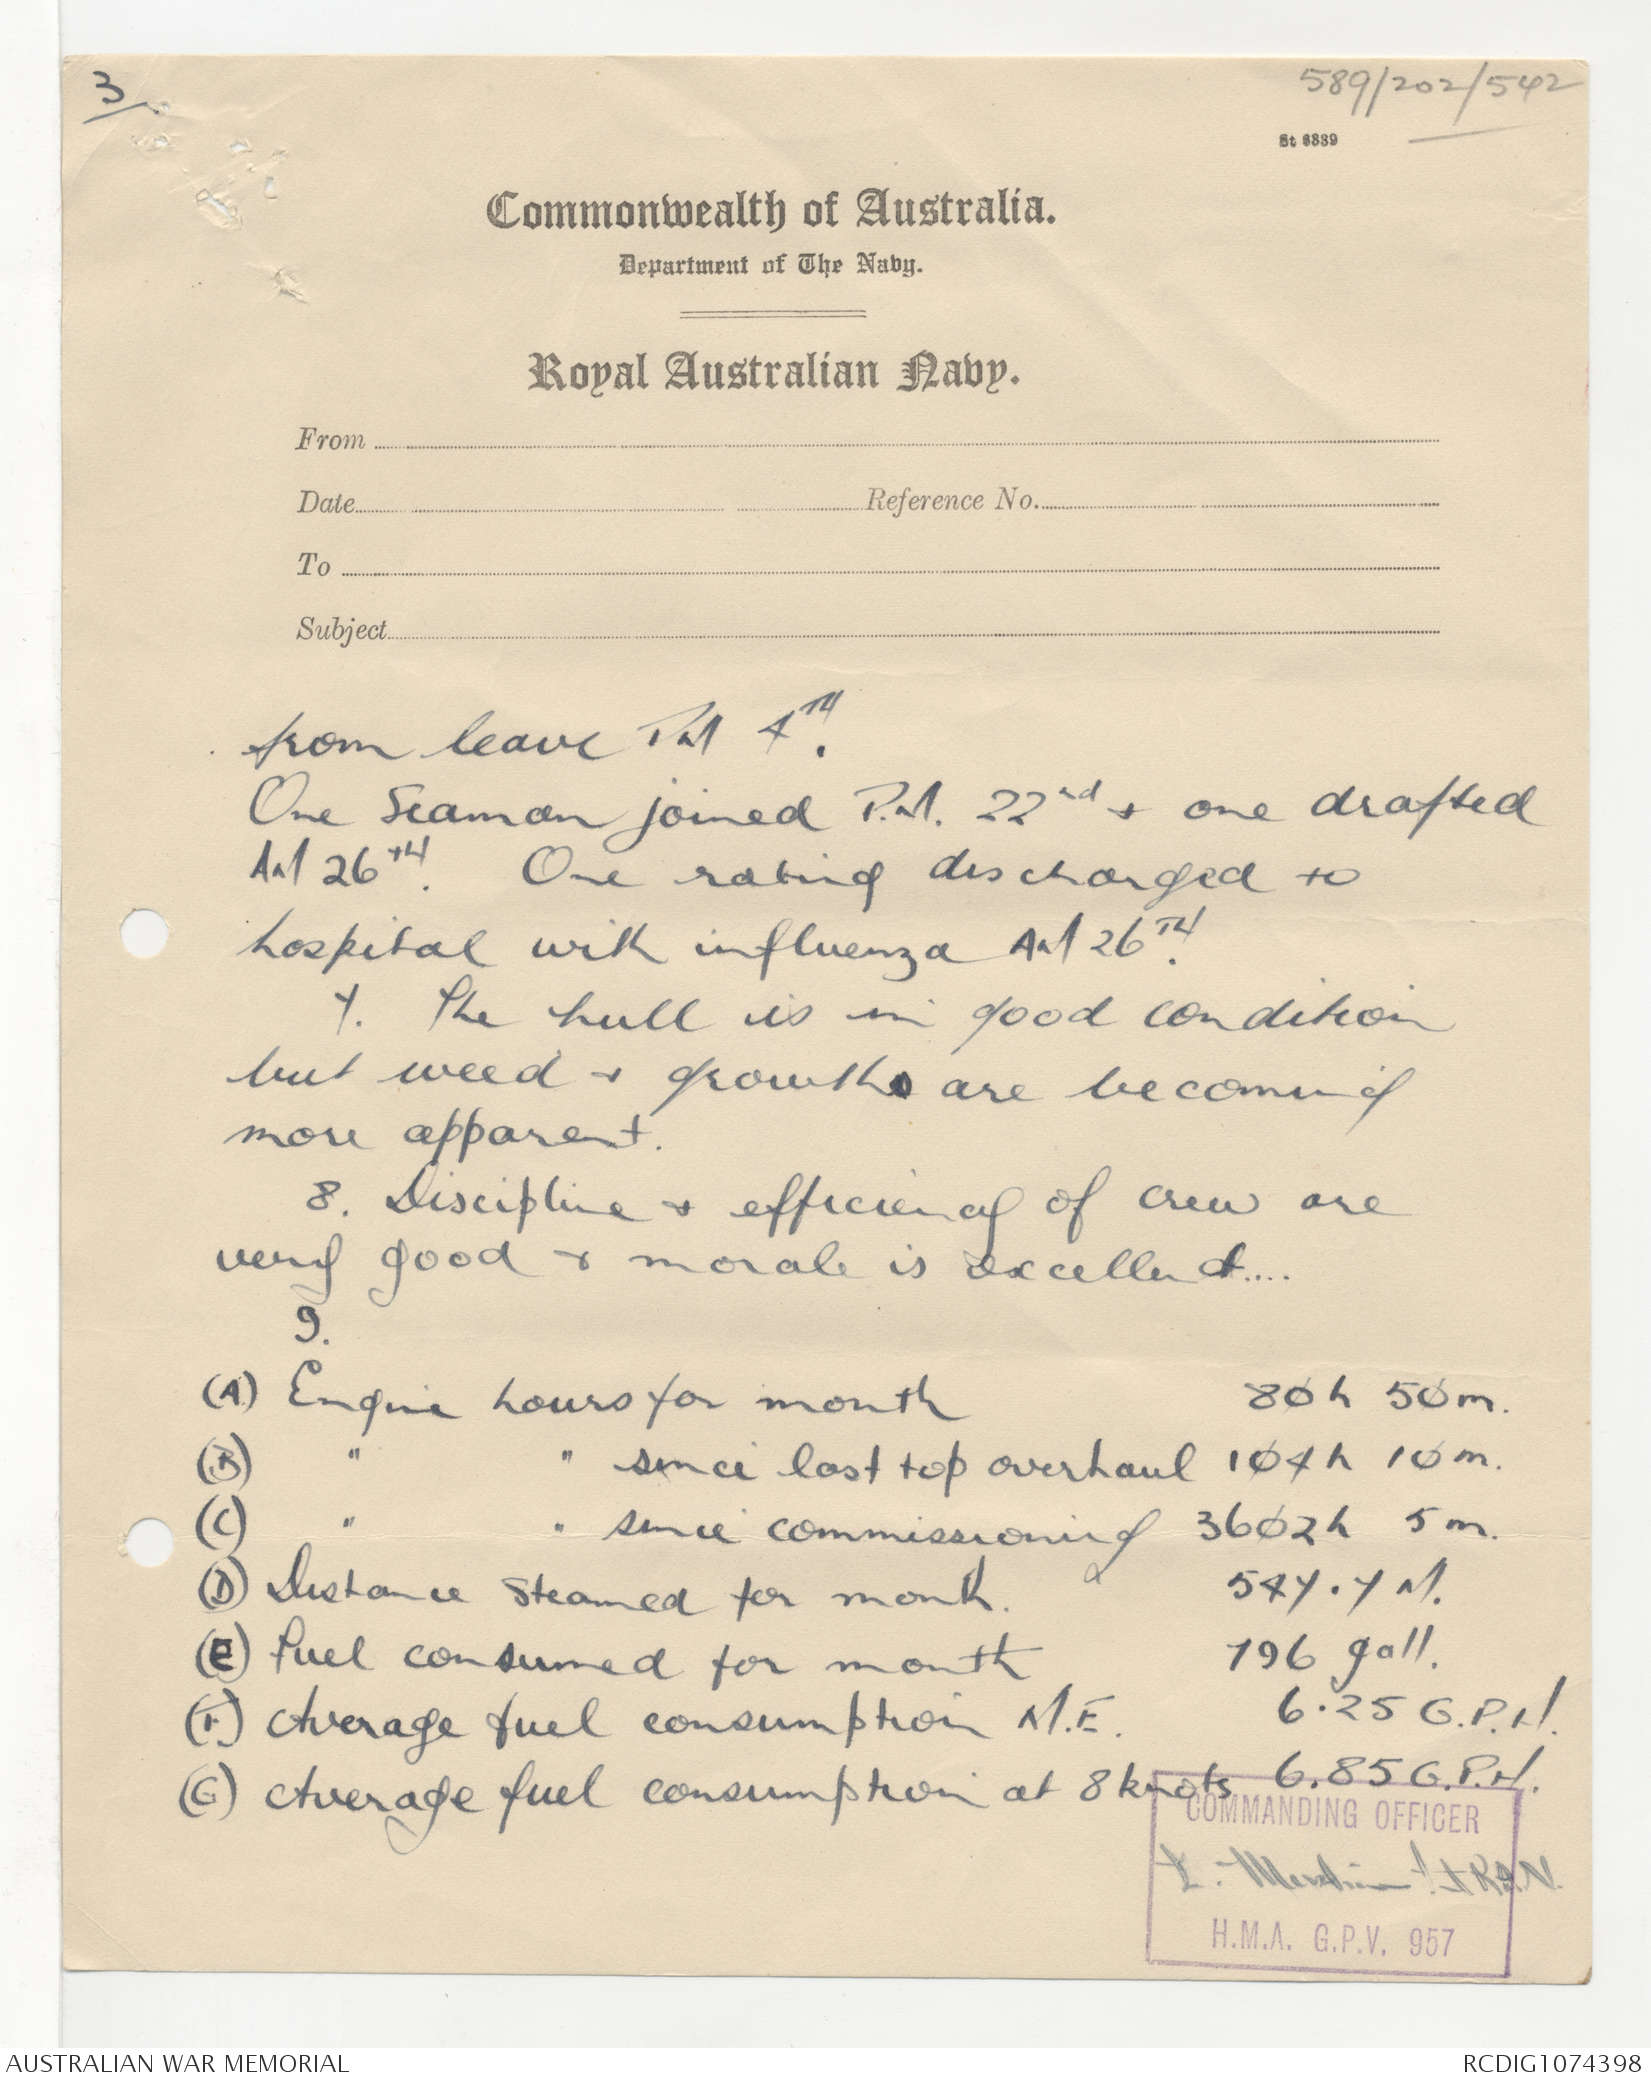 3
589/202/542
St 6339
Commonwealth of Australia.
Department of The Navy.
Royal Australian Navy.
From
Date Reference No.
To
Subject
from leave P.M 4TH.
One Seaman joined P.M. 22nd + one drafted
AM 26TH. One rating discharged to
hospital with influenza AM 26TH.
7. The hull is in good condition
but weed + growths are becoming
more apparent.
8. Discipline + efficiency of crew are
very good + morale is excellent....
9.
(A) Engine hours for month 80h 50m.
(B) " " since last top overhaul 104h 10m.
(C) " " since commissioning 3602h 5m.
(D) Distance steamed for month. 547.7 M.
(E) Fuel consumed for month 796 gall.
(F) Average fuel consumption M.E. 6.25 G.P.H.
(G) Average fuel consumption at 8 knots 6.85 G.P.H.
COMMANDING OFFICER
H.M.A. G.P.V. 957
AUSTRALIAN WAR MEMORIAL
RCDIG1074398